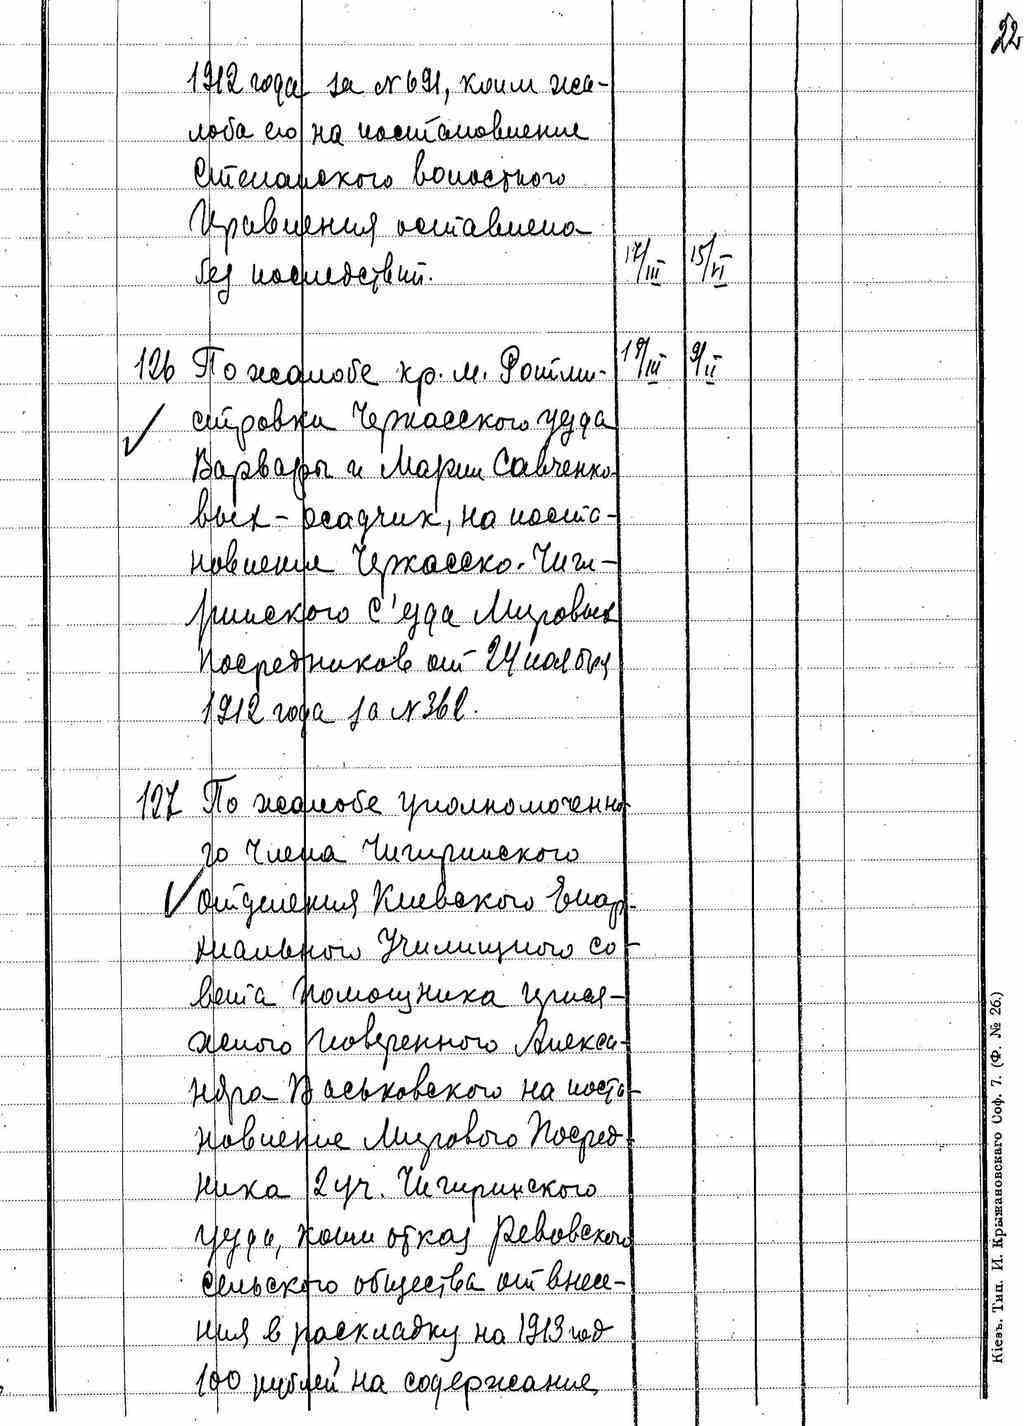 22
1912 года за N 691, коим жа-
лоба его на постановление
Степанского волостного
Правления оставлена
без последствий. 17/III 15/VI
126 По жалобе кр. м. Ротми- 19/III 9/II
стровки Черкасского уезда
Варвары и Марии Савченко-
вых-Осадчих, на поста-
новление Черкасско-Чиги-
ринского С'езда Мировых
Посредников от 24 ноября
1912 года за N 362.
127 По жалобе уполномоченно-
го Члена Чигиринского
Отделения Киевского Епар-
хиального Училищного со-
вета Помощника прися-
жного Поверенного Алекса-
ндра Васьковского на поста-
новление Мирового Посред-
ника 2 уч. Чигиринского
уезда, коим отказ Ревовского
сельского общества от внесе-
ния в раскладку на 1913 год
100 рублей на содержание
Кіевъ. Тип. И. Крыжановскаго Соф. 7. (Ф. № 26.)